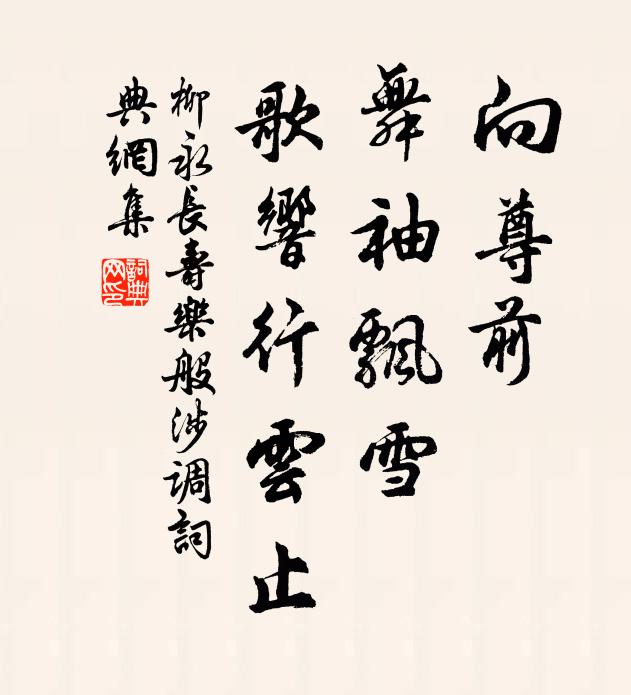 向尊前
舞袖飄雪
歌響行雲止
柳永長壽樂般涉调詞
典網集
詞典
网印